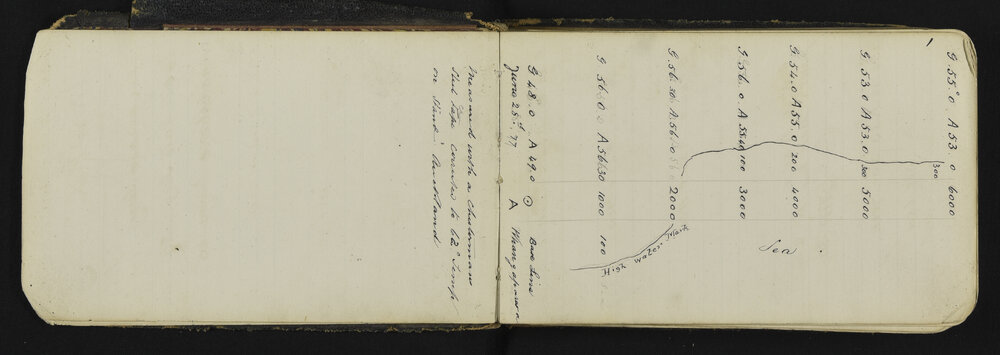 1
G 55.0 A 53.0 6000
300
G 53.0 A 53.0 300 5000
G 54.0 A 55.0 200 4000
G 56.0 A 55.40 100 3000
Sea
G 56.30 A 56.0 2000
High Water Mark
G 56.0 A 56.30 1000 100
G 48.0 A 49.0 Base Line
June 28th. 77 A Whangaparoa
Measured with a Chesterman
Steel Tape correct to 62° Temp
on Stand Auckland